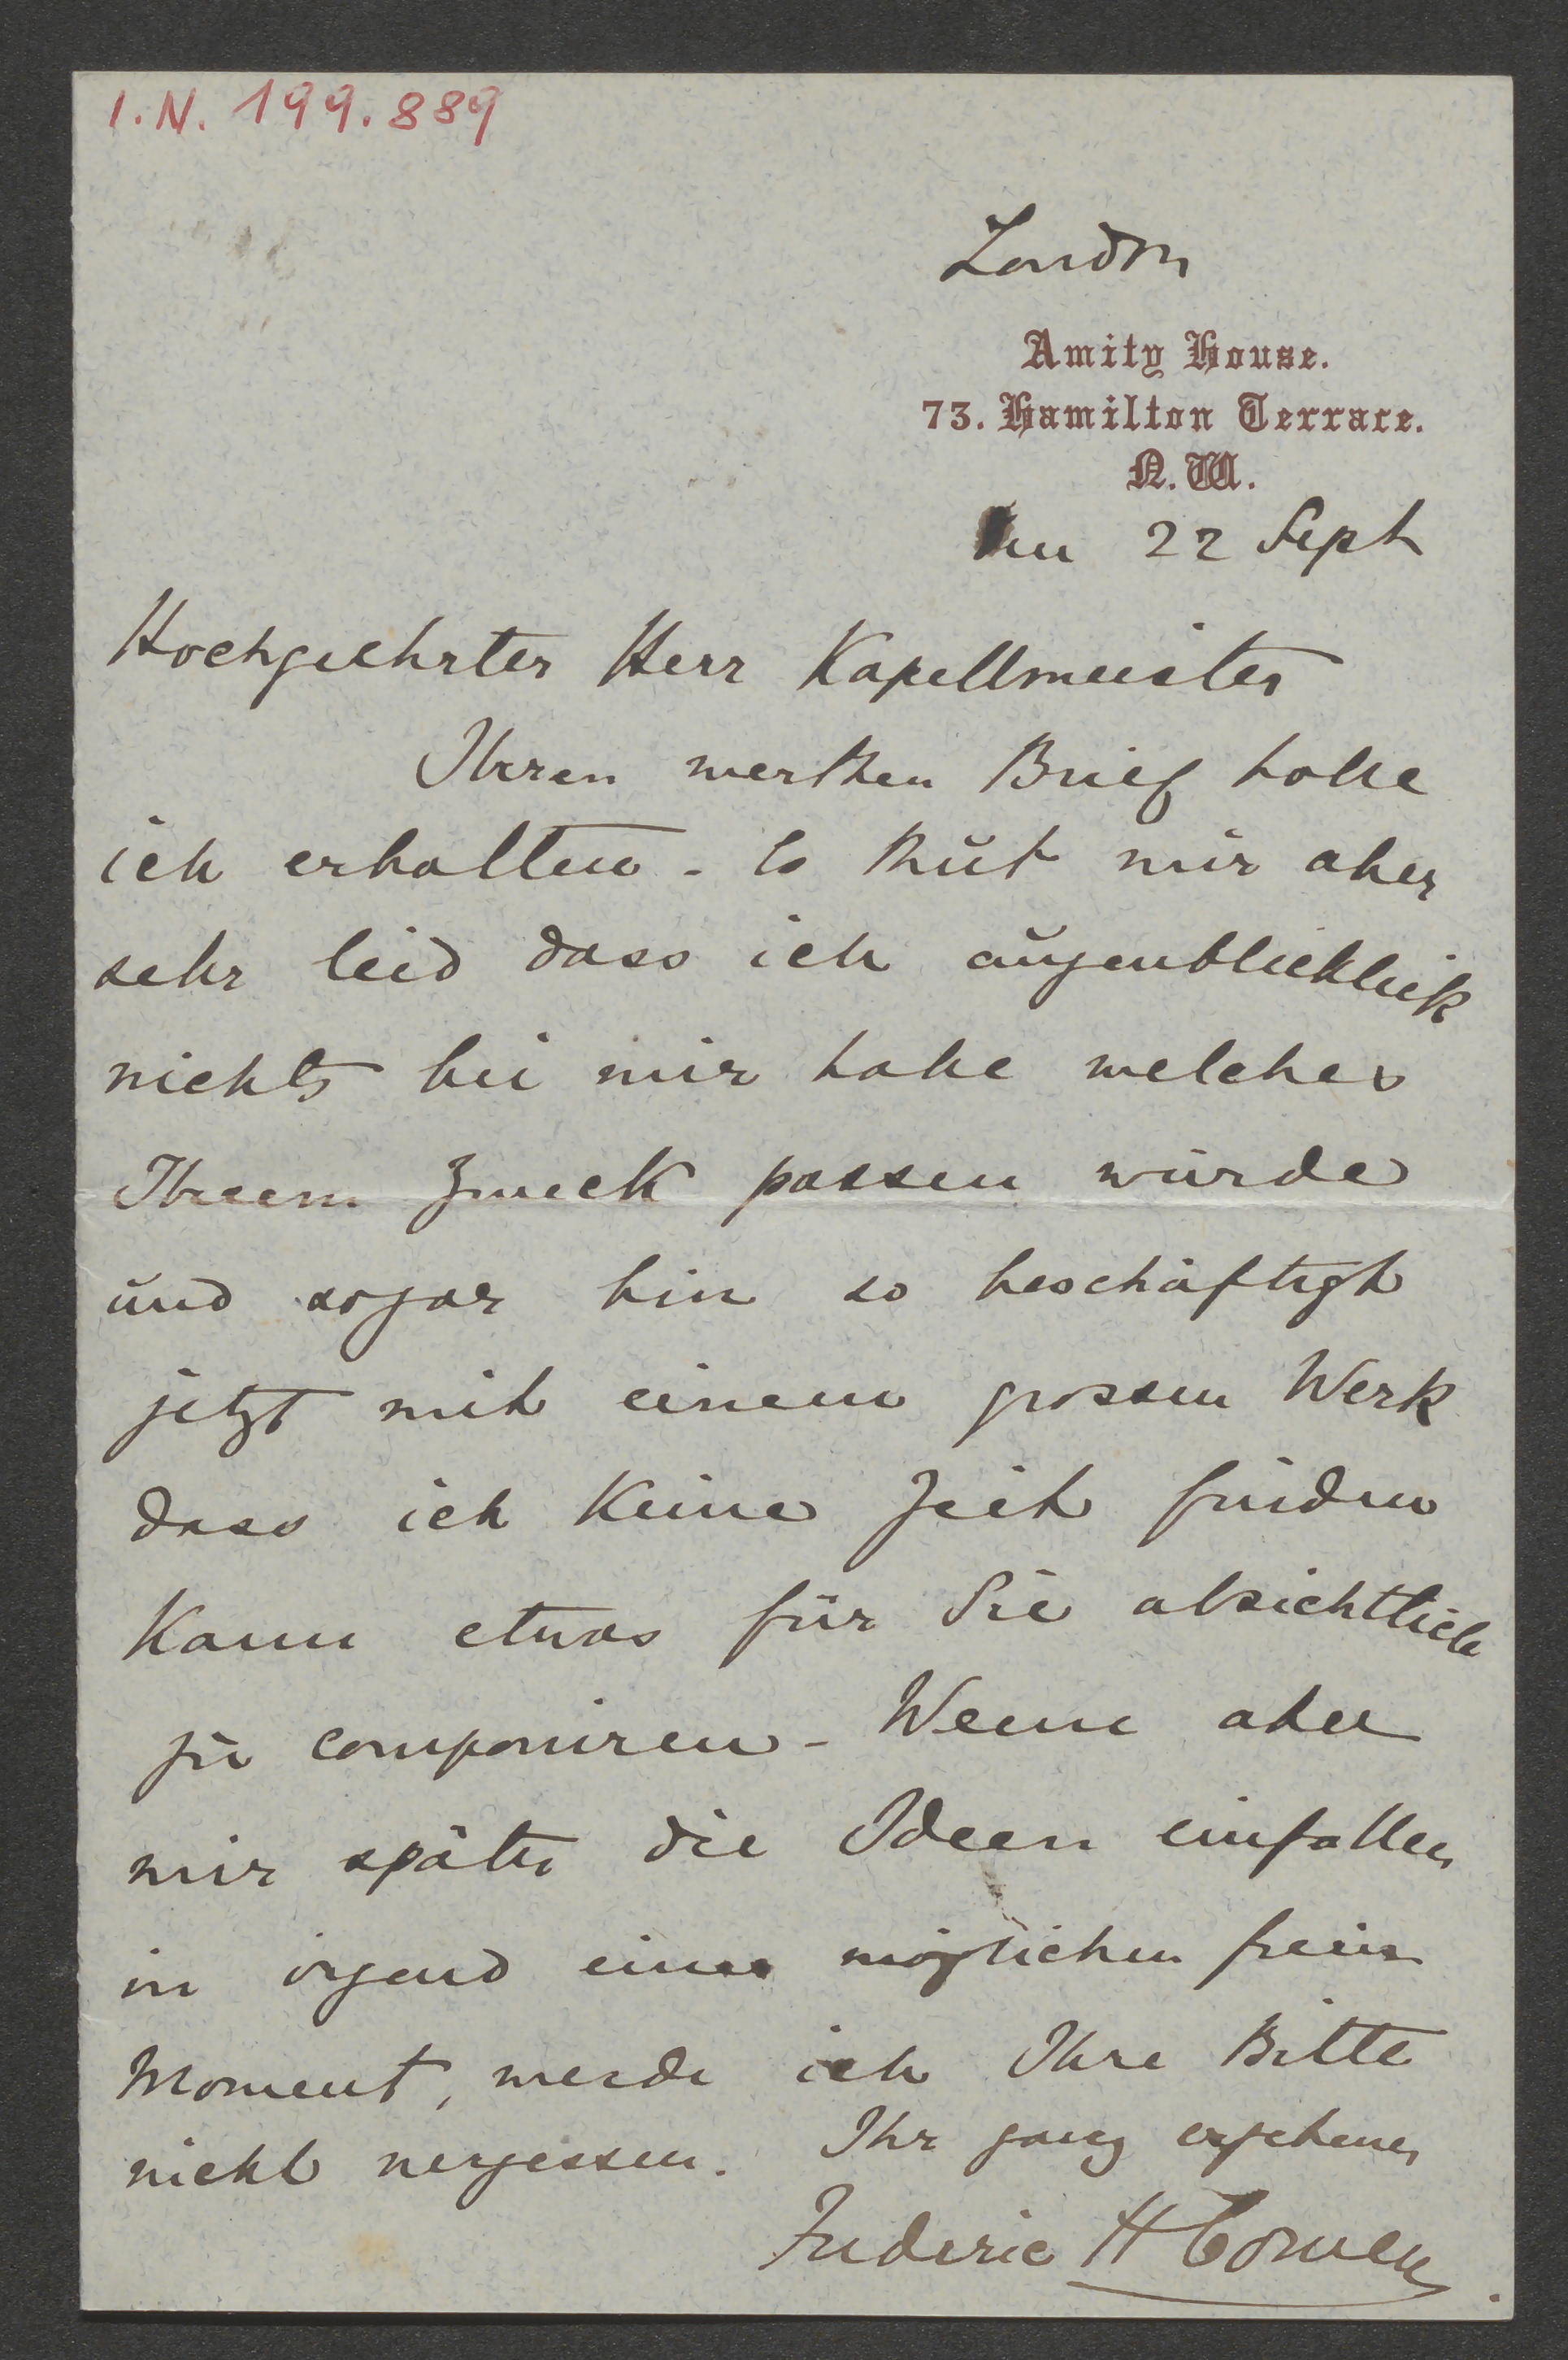 I.N. 199.889
London
Amity House.
73. Hamilton Terrace.
N.W.
den 22 Sept
Hochgeehrter Herr Kapellmeister
Ihren werthen Brief habe
ich erhalten. Es thut mir aber
sehr leid dass ich augenblicklich
nichts bei mir habe welches
Ihrem Zweck passen würde
und sogar bin so beschäftigt
jetzt mit einem grossen Werk
dass ich keine Zeit finden
kann etwas für Sie absichtlich
zu componiren. Wenn aber
mir später die Ideen einfallen
in irgend einen möglichen freien
Moment, werde ich Ihre Bitte
nicht vergessen. Ihr ganz ergebener
Frederic H Cowen